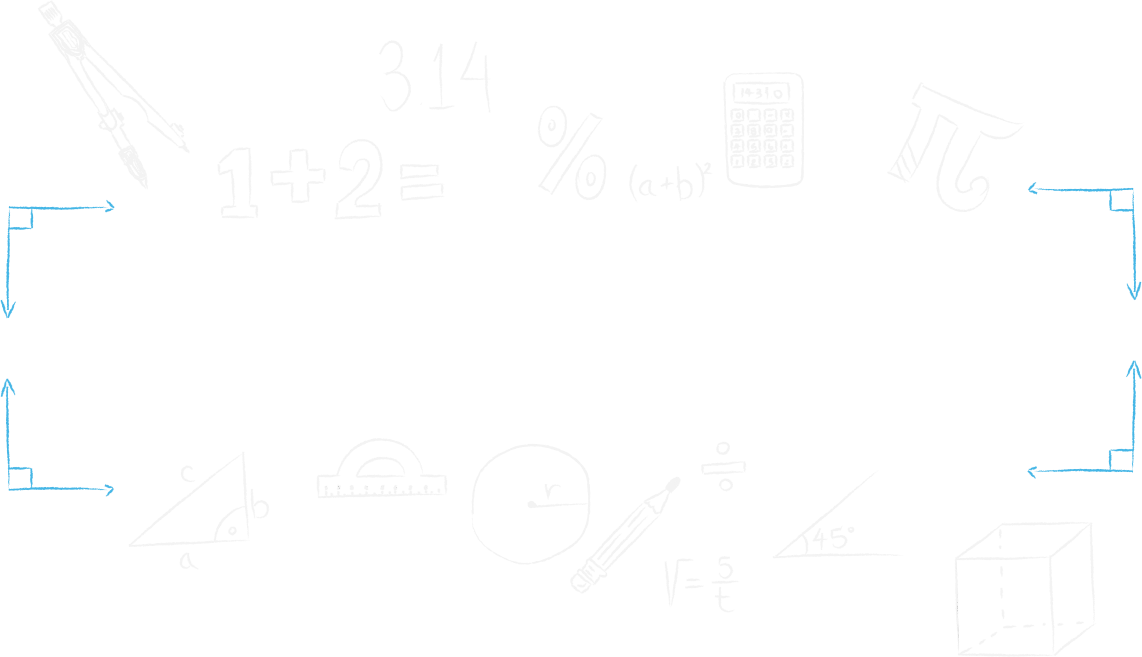 314
1+2=
%
(a+b)²
π
c
b
a
r
÷
45°
V = s/t